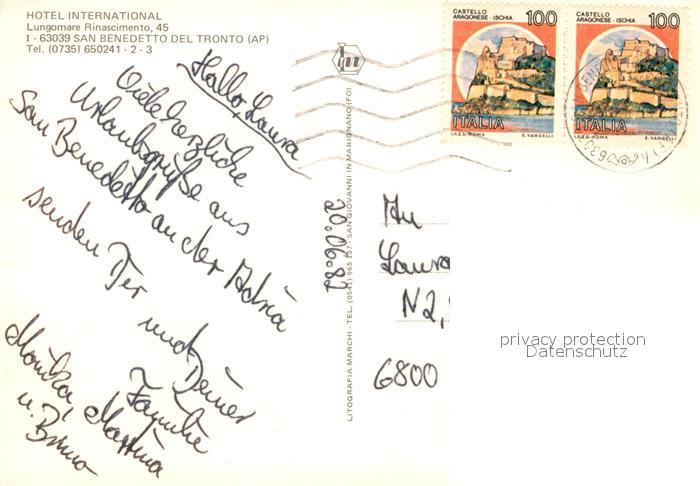 HOTEL INTERNATIONAL
Lungomare Rinascimento, 45
I - 63039 SAN BENEDETTO DEL TRONTO (AP)
Tel. (0735) 650241 - 2 - 3
Hallo, Laura
Viele herzliche
Urlaubsgrüße aus
San Benedetto an der Adria
senden Dir
und Deiner
Familie
Monika, Martina
u. Bruno
20.06.82
LITOGRAFIA MARCHI - TEL. (0541) 965 257 - SAN GIOVANNI IN MARIGNANO (FO)
CASTELLO
ARAGONESE - ISCHIA
100
ITALIA
I.P.Z.S. - ROMA E. VANGELLI
CASTELLO
ARAGONESE - ISCHIA
100
ITALIA
I.P.Z.S. - ROMA E. VANGELLI
An
Laura
N2,
6800
privacy protection
Datenschutz